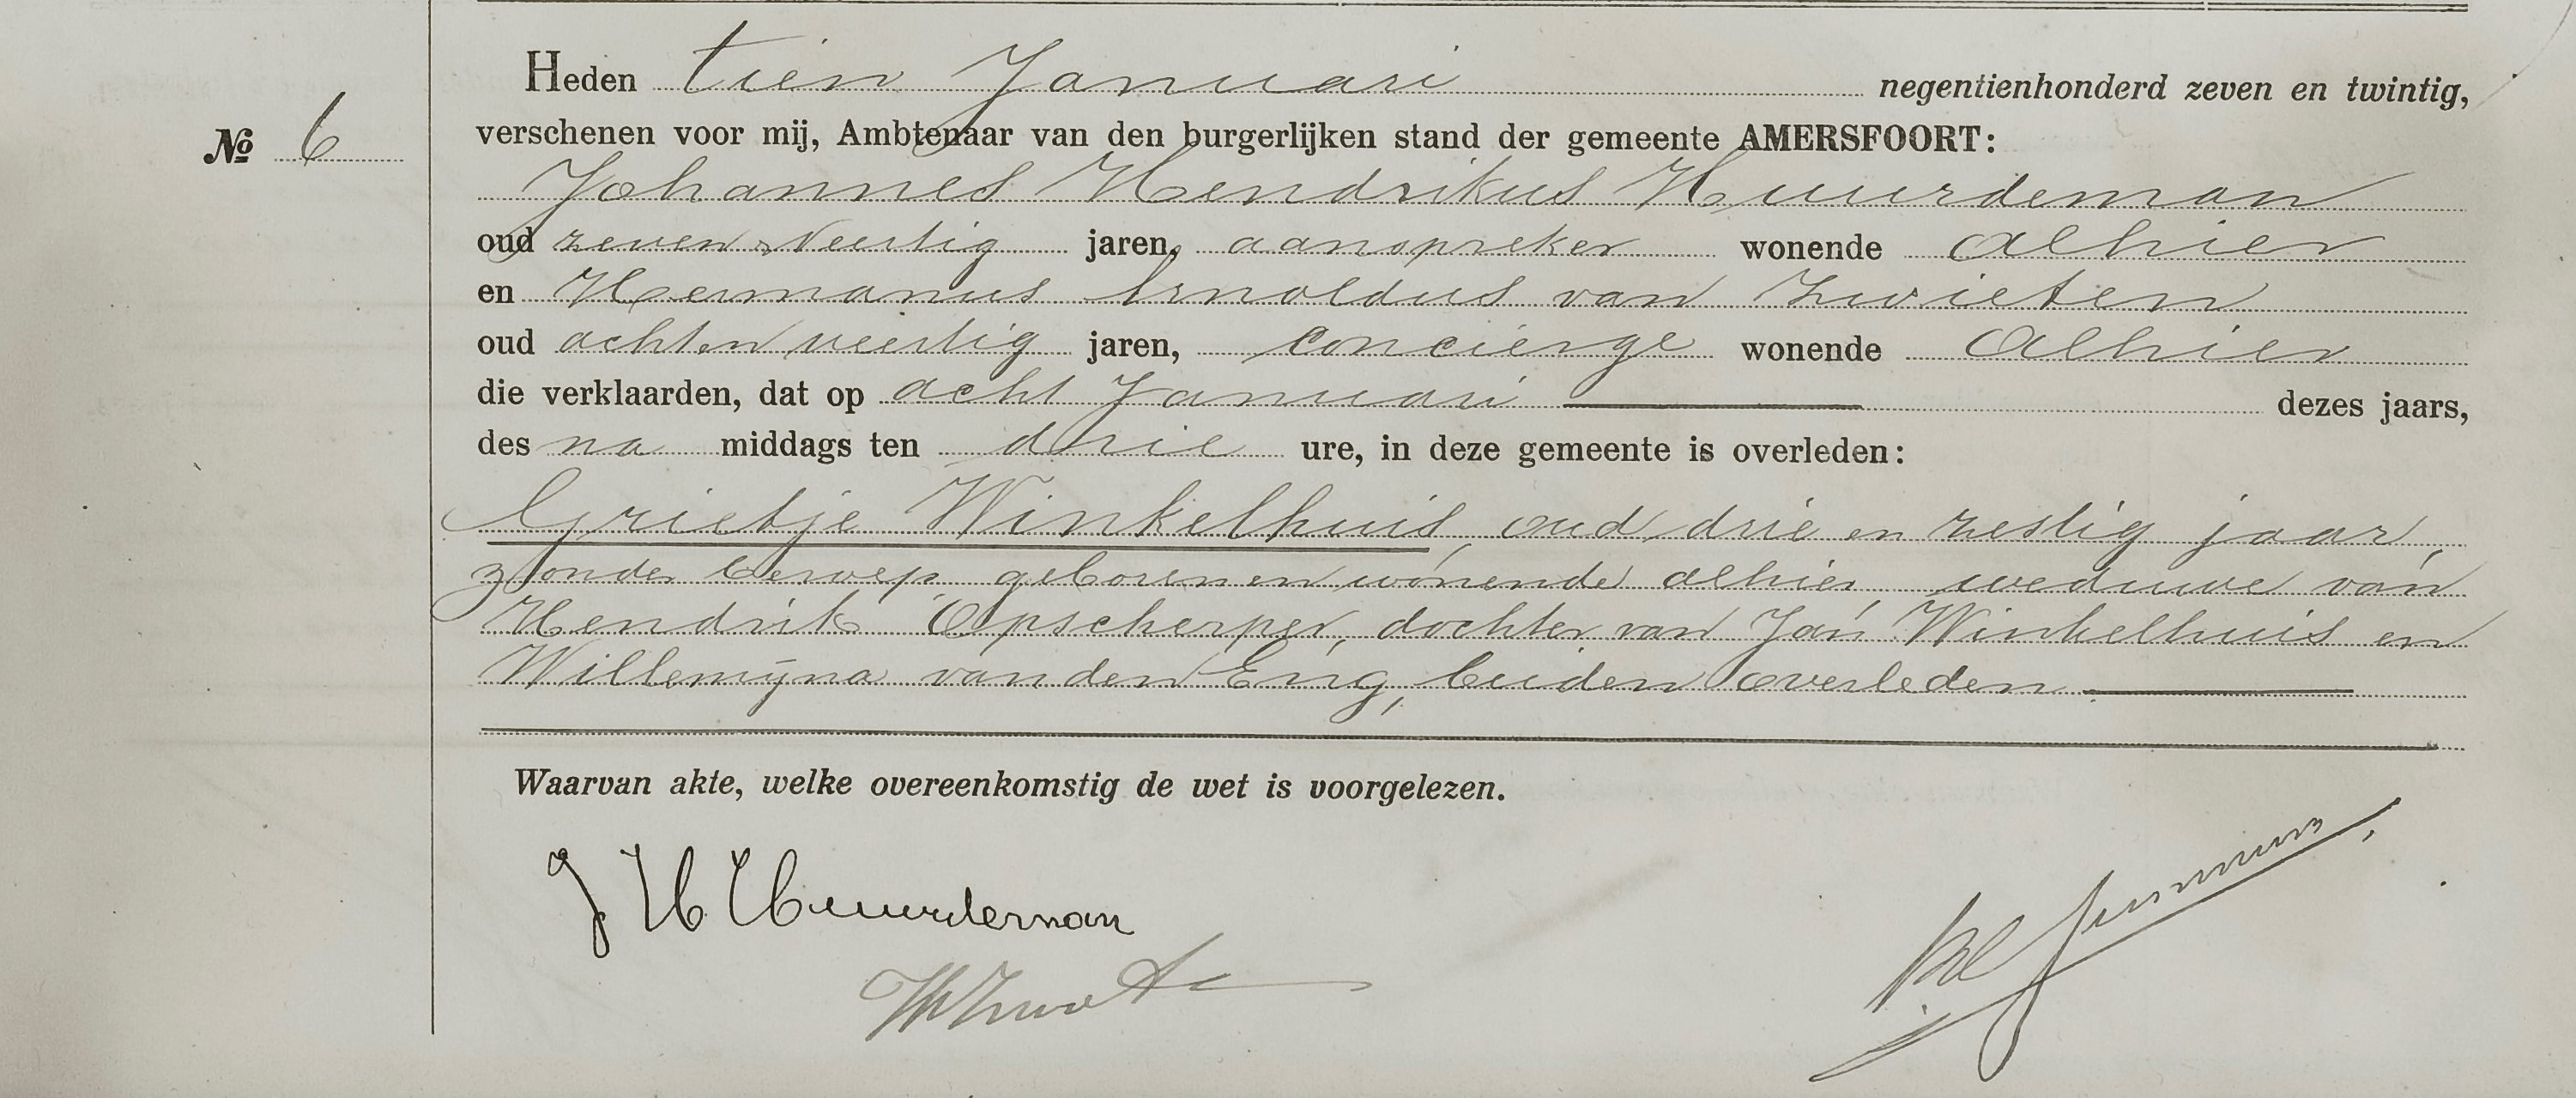 Heden tien Januari negentienhonderd zeven en twintig,
No 6
verschenen voor mij, Ambtenaar van den burgerlijken stand der gemeente AMERSFOORT:
Johannes Hendrikus Huurdeman
oud zeven en veertig jaren, aanspreker wonende alhier
en Hermanus Arnoldus van Zwieten
oud acht en veertig jaren, concierge wonende alhier
die verklaarden, dat op acht Januari dezes jaars,
des na middags ten drie ure, in deze gemeente is overleden:
Grietje Winkelhuis, oud drie en zestig jaar,
zonder beroep geboren en wonende alhier, weduwe van
Hendrik Opscherper, dochter van Jan Winkelhuis en
Willemijna van den Eng, beiden overleden.
Waarvan akte, welke overeenkomstig de wet is voorgelezen.
J H Huurdeman